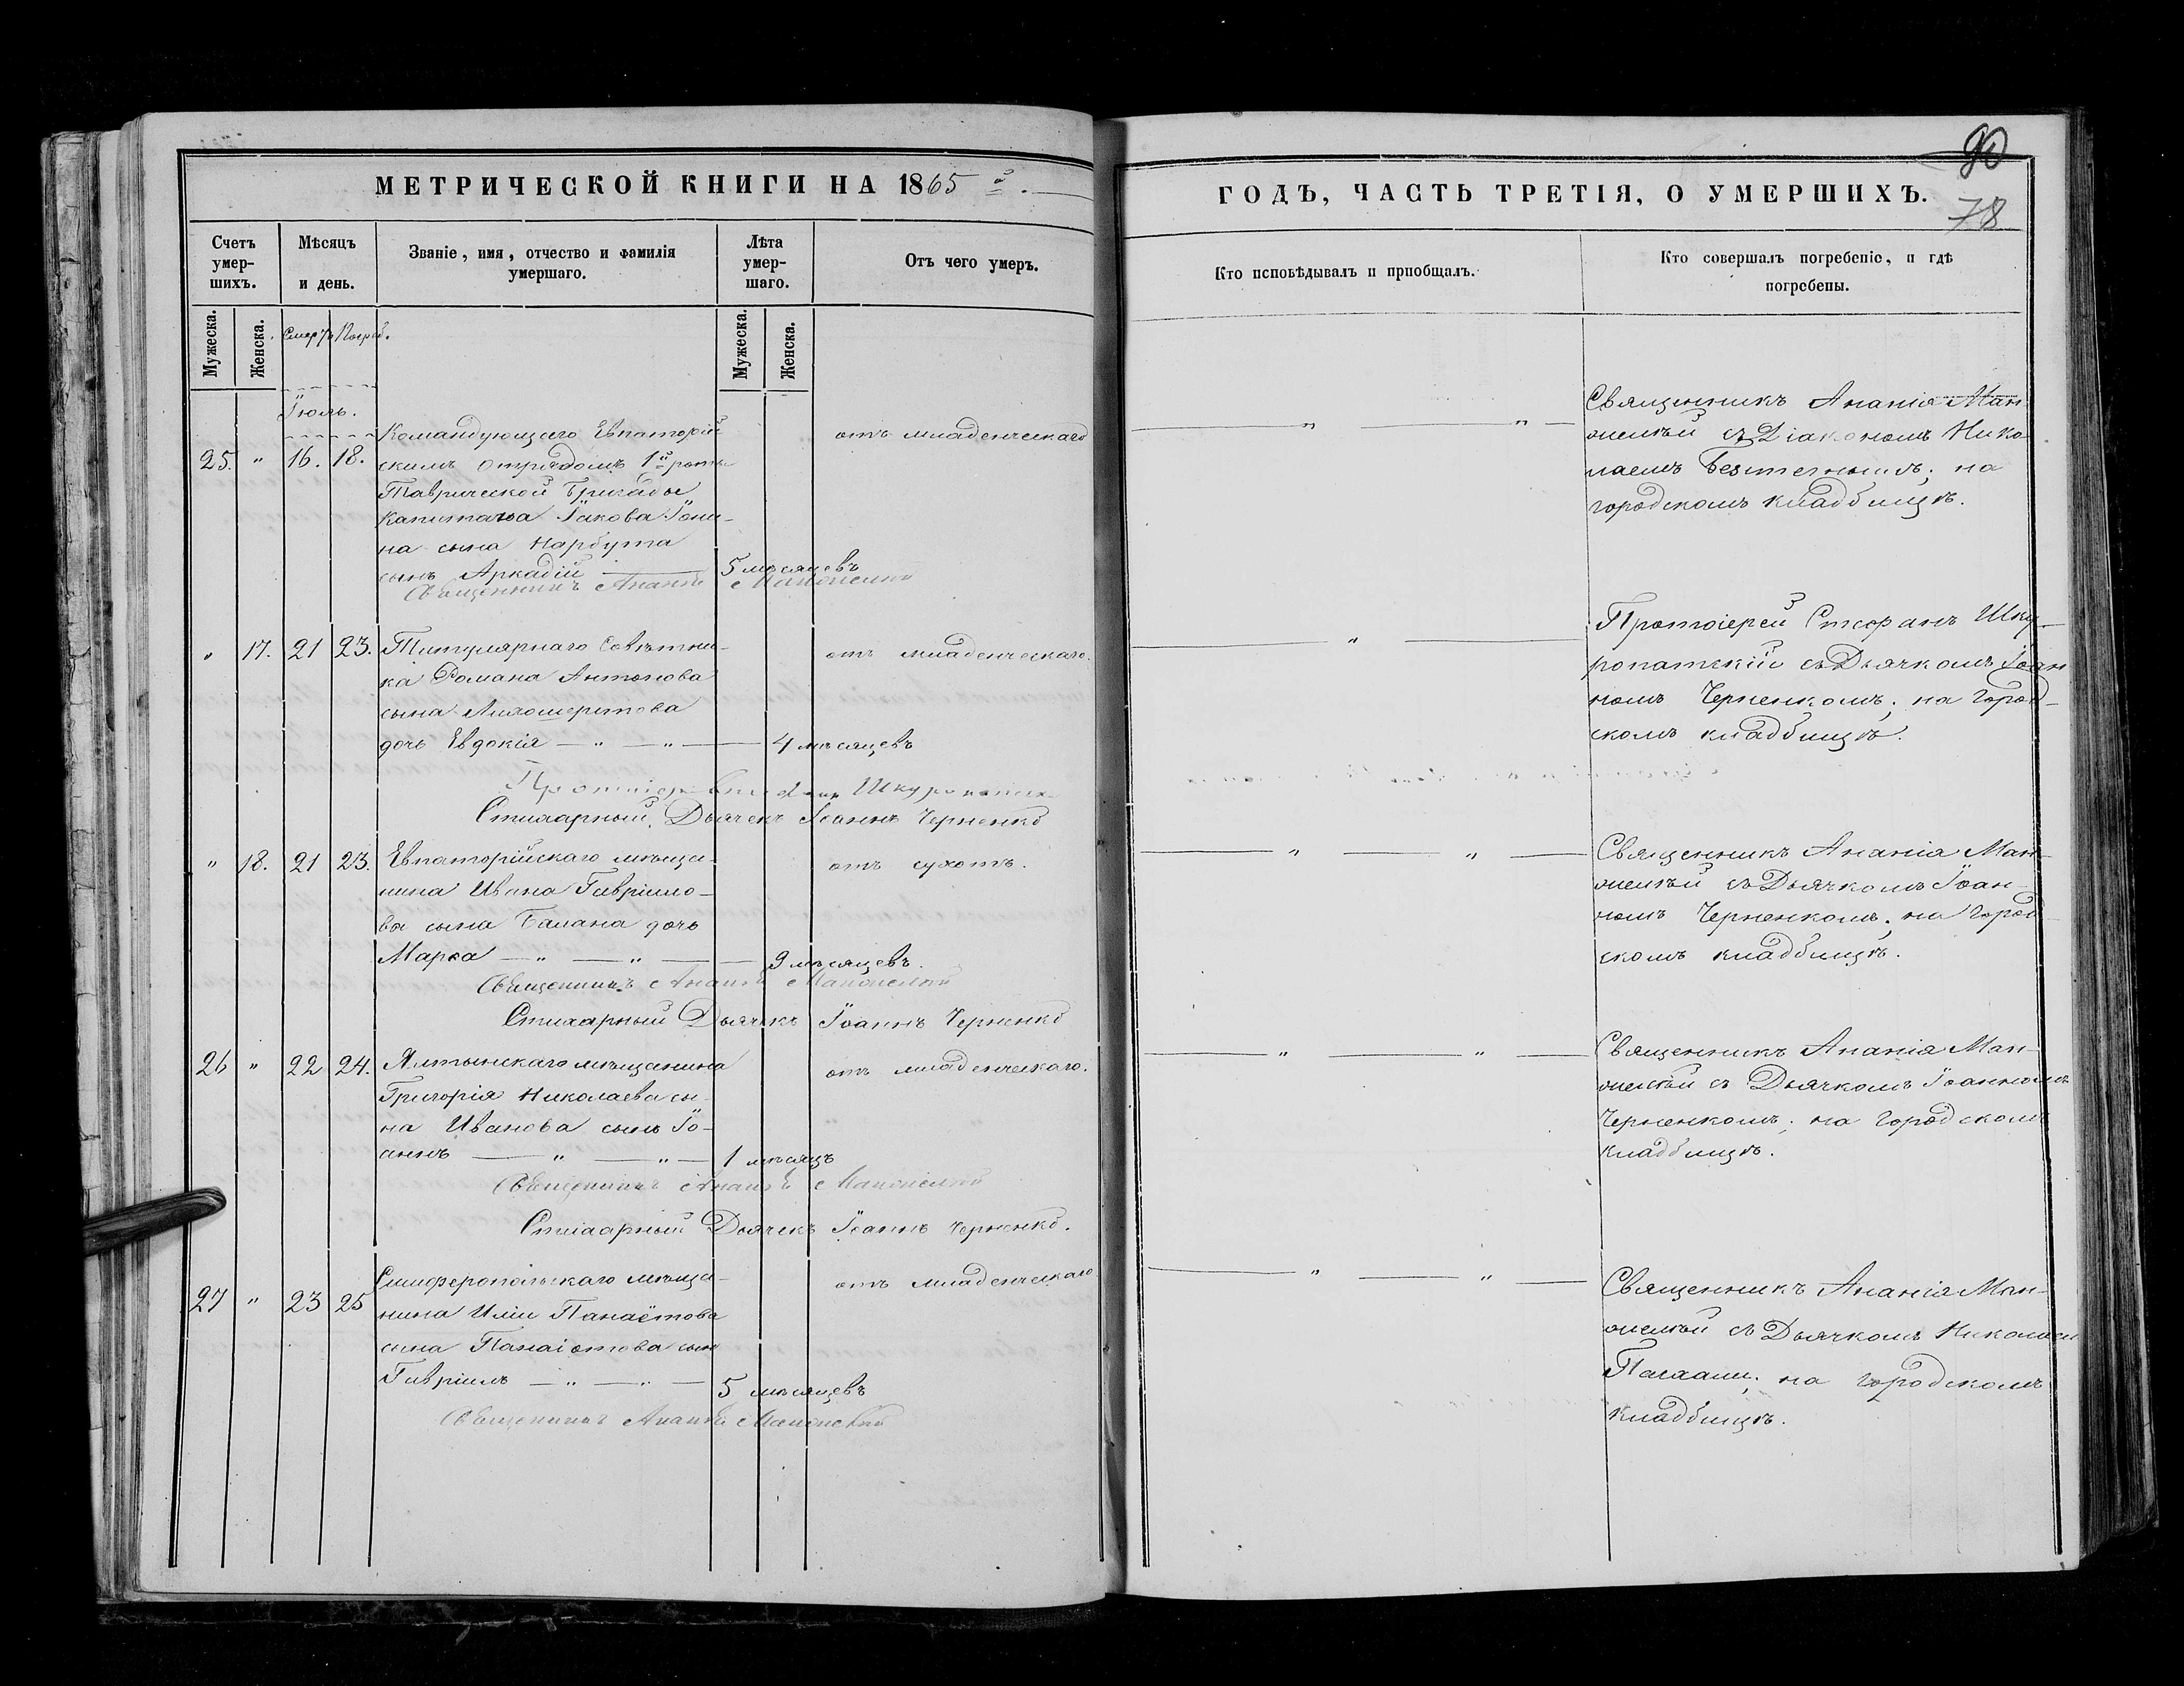 МЕТРИЧЕСКОЙ КНИГИ НА 1865 й.
Счетъ умер-шихъ.
Мѣсяцъ и день.
Званіе, имя, отчество и фамилія умершаго.
Лѣта умер-шаго.
Отъ чего умеръ.
Мужеска.
Женска.
Смерть
Погреб.
Мужеска.
Женска.
Іюль.
25. " 16. 18.
Командующаго Евпаторій-
скимъ отрядомъ 1й роты
Таврической Бригады
Капитана Іакова Іони-
на сына Нарбута
сынъ Аркадій 5 мѣсяцевъ
отъ младенческаго
Священникъ Ананія
" 17. 21 23.
Титулярнаго Совѣтни-
ка Романа Антонова
сына
дочь Евдокія — " — " — 4 мѣсяцевъ
отъ младенческаго.
Стихарный Дьячекъ Іоаннъ Черненко
" 18. 21 23.
Евпаторійскаго мѣща-
нина Ивана Гавріило-
ва сына Балана дочь
Марѳа — " — " — 9 мѣсяцевъ.
отъ сухотъ.
Священникъ Ананія
Стихарный Дьячекъ Іоаннъ Черненко
26 " 22 24.
Ялтынскаго мѣщанина
Григорія Николаева сы-
на Иванова сынъ Іо-
аннъ — " — " — 1 мѣсяцъ
отъ младенческаго.
Священникъ Ананія
Стихарный Дьячекъ Іоаннъ Черненко.
27 " 23 25
Симферопольскаго мѣща-
нина Иліи Панаётова
сына Панаіотова сынъ
Гавріилъ — " — " — 5 мѣсяцевъ
отъ младенческаго
Священникъ Ананія
90
78
ГОДЪ, ЧАСТЬ ТРЕТІЯ, О УМЕРШИХЪ.
Кто исповѣдывалъ и пріобщалъ.
Кто совершалъ погребеніе, и гдѣ погребены.
Священникъ Ананія
съ Діакономъ Нико-
лаемъ на
городскомъ кладбищѣ.
Протоіерей Стефанъ Шку-
ропатскій съ Дьячкомъ Іоан
номъ Черненкомъ; на город-
скомъ кладбищѣ.
Священникъ Ананія
съ Дьячкомъ Іоан-
номъ Черненкомъ; на город
скомъ кладбищѣ.
Священникъ Ананія
съ Дьячкомъ Іоанномъ
Черненкомъ; на городскомъ
кладбищѣ.
Священникъ Ананія
съ Дьячкомъ Николаем
на городскомъ
кладбищѣ.